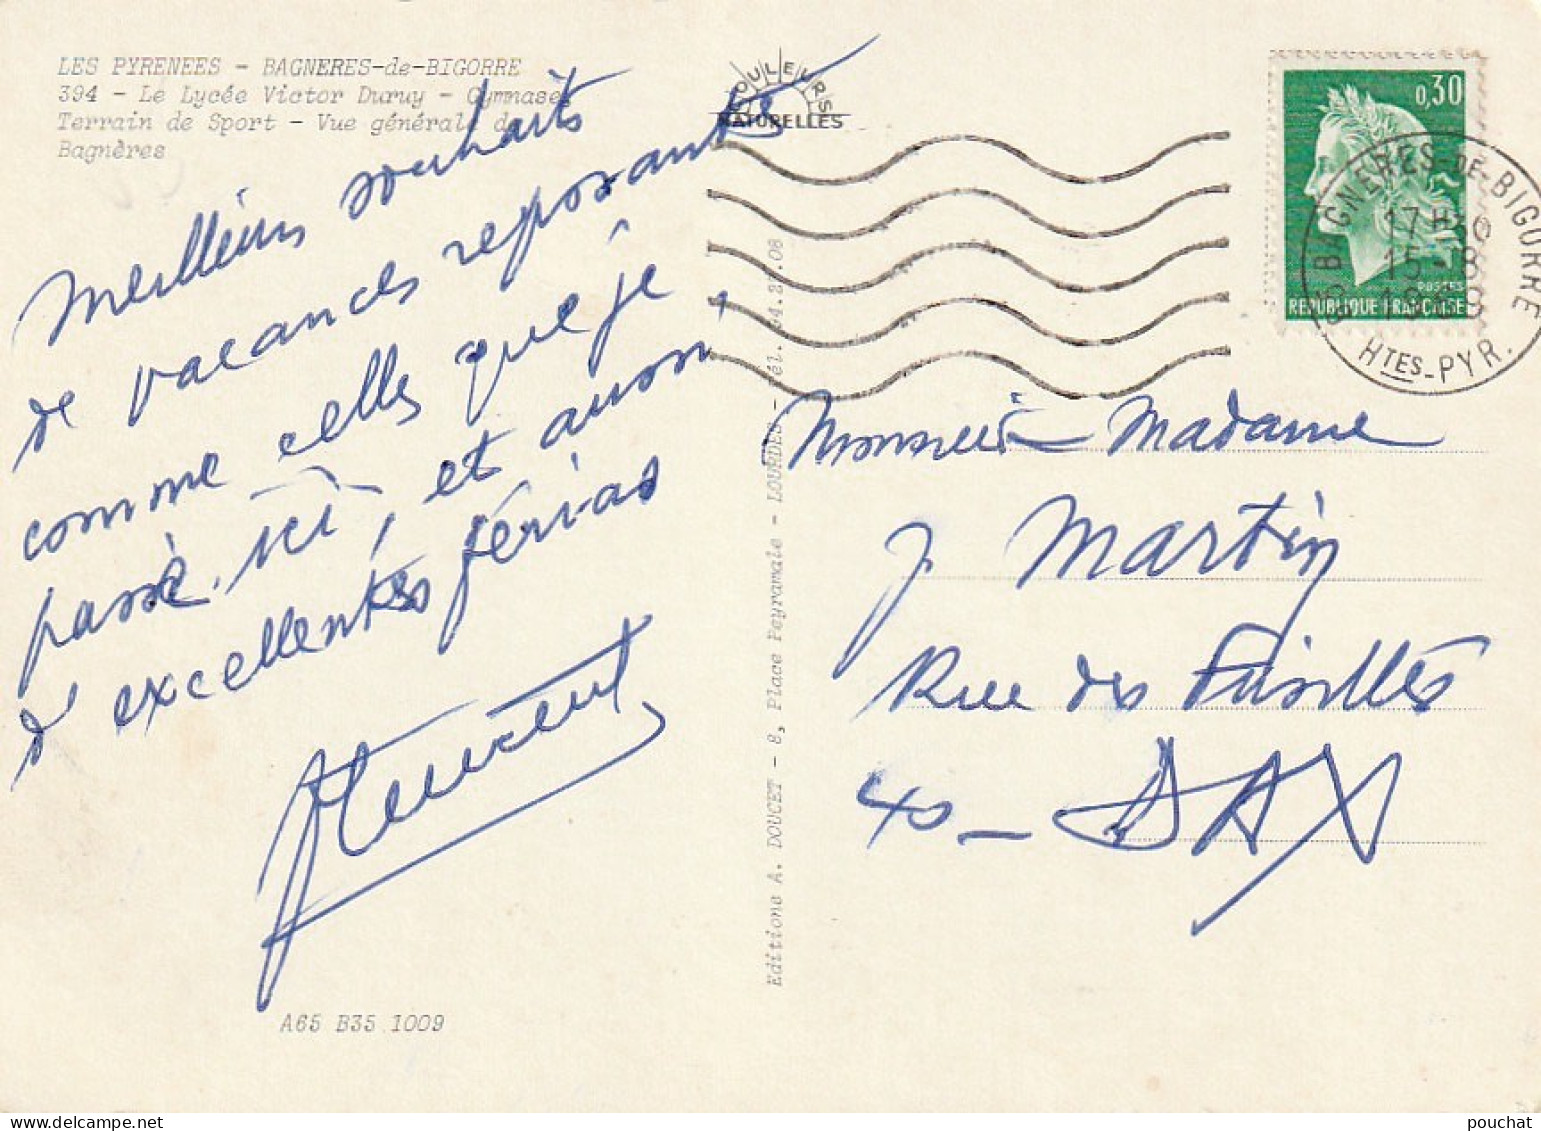 LES PYRENEES - BAGNERES-de-BIGORRE
394 - Le Lycée Victor Duruy - Gymnases
Terrain de Sport - Vue générale de
Bagnères
COULEURS
NATURELLES
Meilleurs souhaits
de vacances reposantes
comme celles que je
passe ici, et aussi,
d'excellentes férias
A65 B35 1009
Editions A. DOUCET - 8, Place Peyramale - LOURDES - Tél. 94.27.08
0,30
POSTES
REPUBLIQUE FRANÇAISE
65 BAGNERES-DE-BIGORRE
17H30
15-8
HTES-PYR.
Monsieur - Madame
J. Martin
Rue des Fusillés
40 - DAX
pouchat